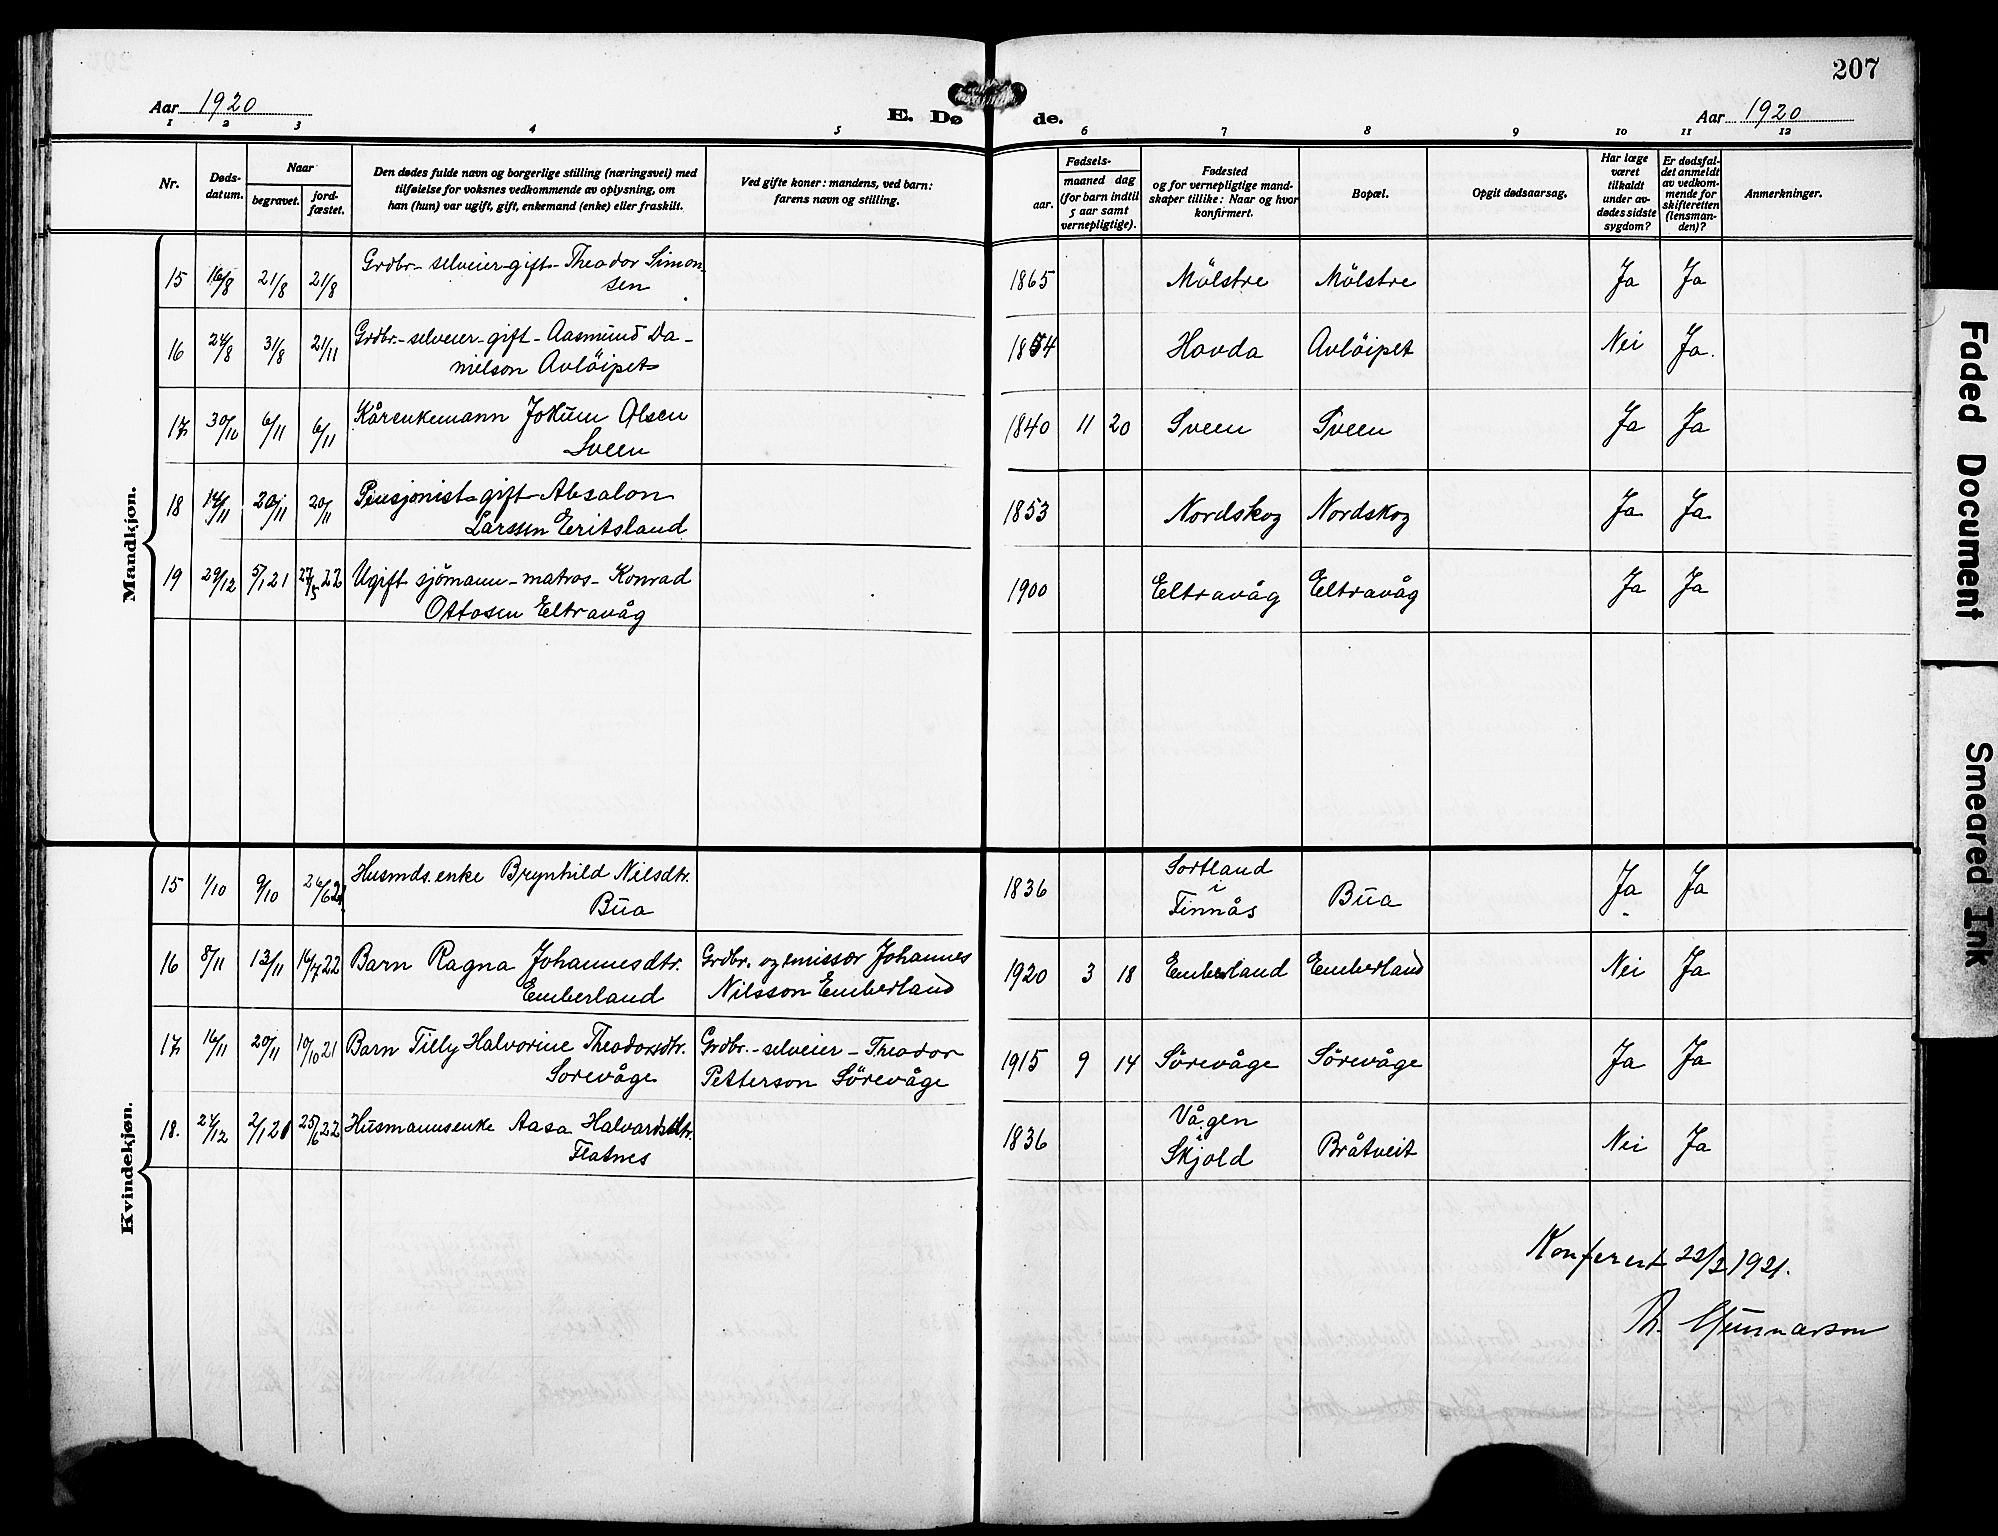 207
Aar 1920
E. Døde.
Aar 1920
1 2 3 4 5 6 7 8 9 10 11 12
Nr.
Døds-
datum.
Naar
begravet.
jord-
fæstet.
Den dødes fulde navn og borgerlige stilling (næringsvei) med
tilføielse for voksnes vedkommende av oplysning, om
han (hun) var ugift, gift, enkemand (enke) eller fraskilt.
Ved gifte koner: mandens, ved barn:
farens navn og stilling.
Fødsels-
aar.
maaned dag
(for barn indtil
5 aar samt
vernepligtige).
Fødested
og for vernepligtige mand-
skaper tillike: Naar og hvor
konfirmert.
Bopæl.
Opgit dødsaarsag.
Har læge
været
tilkaldt
under av-
dødes sidste
sygdom?
Er dødsfal-
det anmeldt
av vedkom-
mende for
skifteretten
(lensman-
den)?
Anmerkninger.
Mandkjøn.
15 16/8 21/8 21/8 Grdbr.- selveier-gift- Theodor Simon- 1865 Mölstre Mölstre Ja Ja
sen
16 24/8 31/8 21/11 Grdbr.-selveier-gift-Aasmund Da- 1854 Hovda Avlöipet Nei Ja.
nielson Avlöipet
17 30/10 6/11 6/11 Kårenkemann Jokum Olsen 1840 11 20 Sveen Sveen Ja Ja
Sveen
18 14/11 20/11 20/11 Pensjonist-gift-Absalon 1853 Nordskog Nordskog Ja Ja
Larssen Eritsland
19 29/12 5/1 21 27/5 22 Ugift sjömann-matros-Konrad 1900 Eltravåg Eltravåg Ja Ja
Ottosen Eltravåg
Kvindekjøn.
15 1/10 9/10 26/6 21. Husmds.enke Brynhild Nilsdtr. 1836 Sortland i Finnås Bua Ja Ja
Bua
16 8/11 13/11 16/7 22 Barn Ragna Johannesdtr. Grdbr. og emissær Johannes 1920 3 18 Emberland Emberland Nei Ja
Emberland Nilsson Emberland
17 16/11 20/11 10/10 21 Barn Tilly Halvorine Theodorsdtr. Grdbr.-selveier-Theodor 1915 9 14 Sörevåge Sörevåge Ja Ja
Sorevåge Petterson Sörevåge
18. 24/12 2/1 21 25/6 22 Husmannsenke Aasa Halvardsdtr. 1836 Vågen i Skjold Bråtveit Nei Ja
Flatnes
Konferert 22/2 1921.
Th. Gunnarson
Faded Document
Smeared Ink